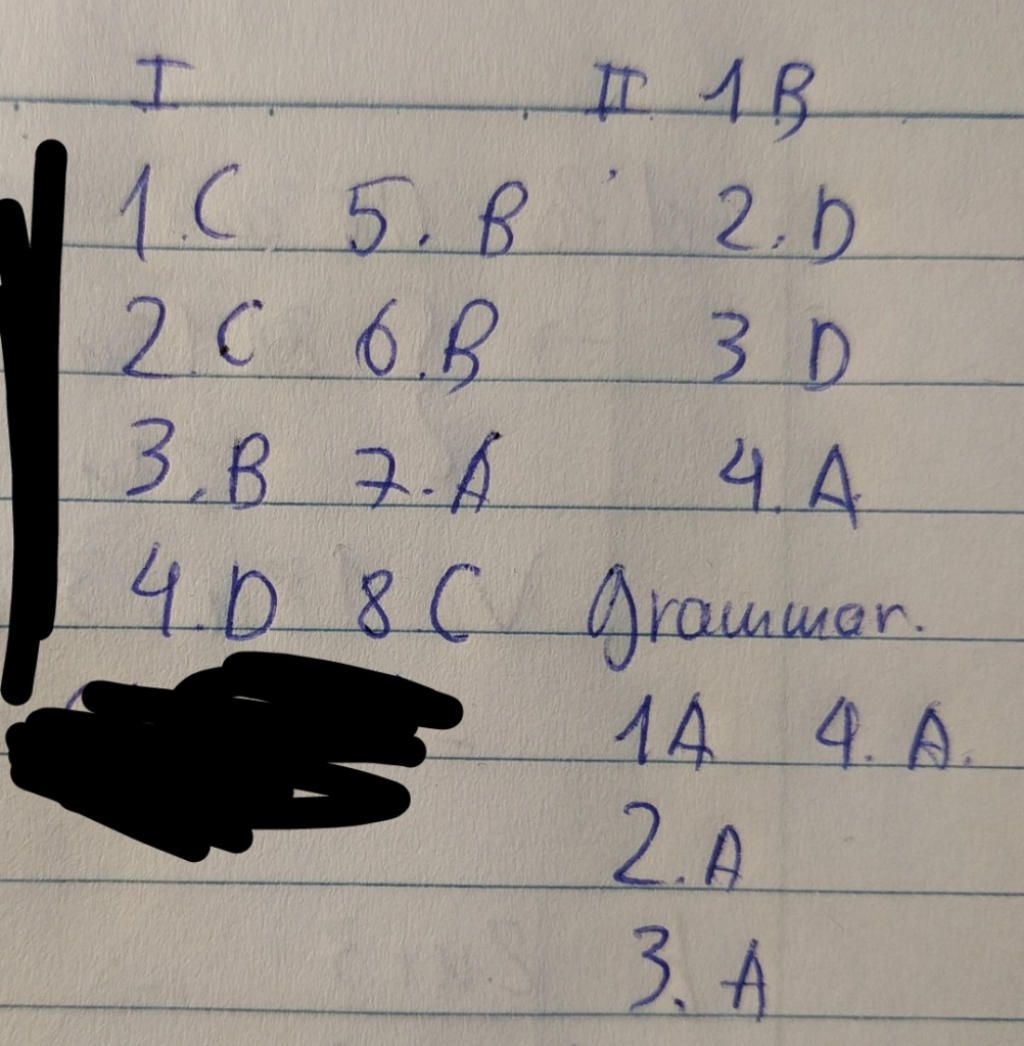 I
1.C 5. B
2.C 6.B
3.B 7.A
4.D 8 C
II 1B
2.D
3 D
4.A
Grammar.
1A 4. A.
2.A
3. A